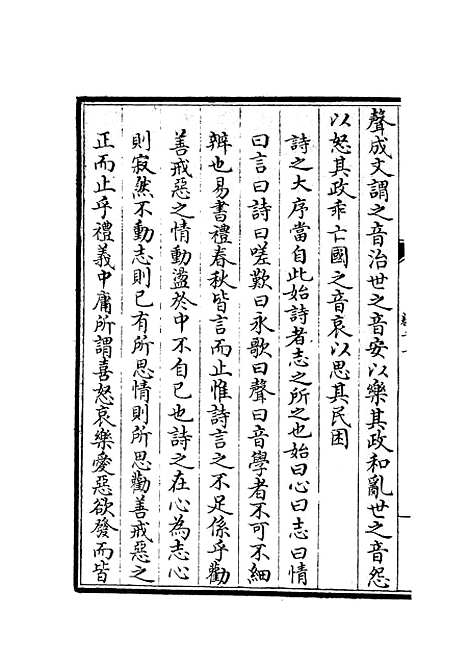 聲成文謂之音治世之音安以樂其政和亂世之音怨
以怒其政乖亡國之音哀以思其民困
詩之大序當自此始詩者志之所之也始曰心曰志曰情
曰言曰詩曰嗟歎曰永歌曰聲曰音學者不可不細
辨也易書禮春秋皆言而止惟詩言之不足係乎勸
善戒惡之情動盪於中不自已也詩之在心為志心
則寂然不動志則已有所思情則所思勸善戒惡之
正而止乎禮義中庸所謂喜怒哀樂愛惡欲發而皆